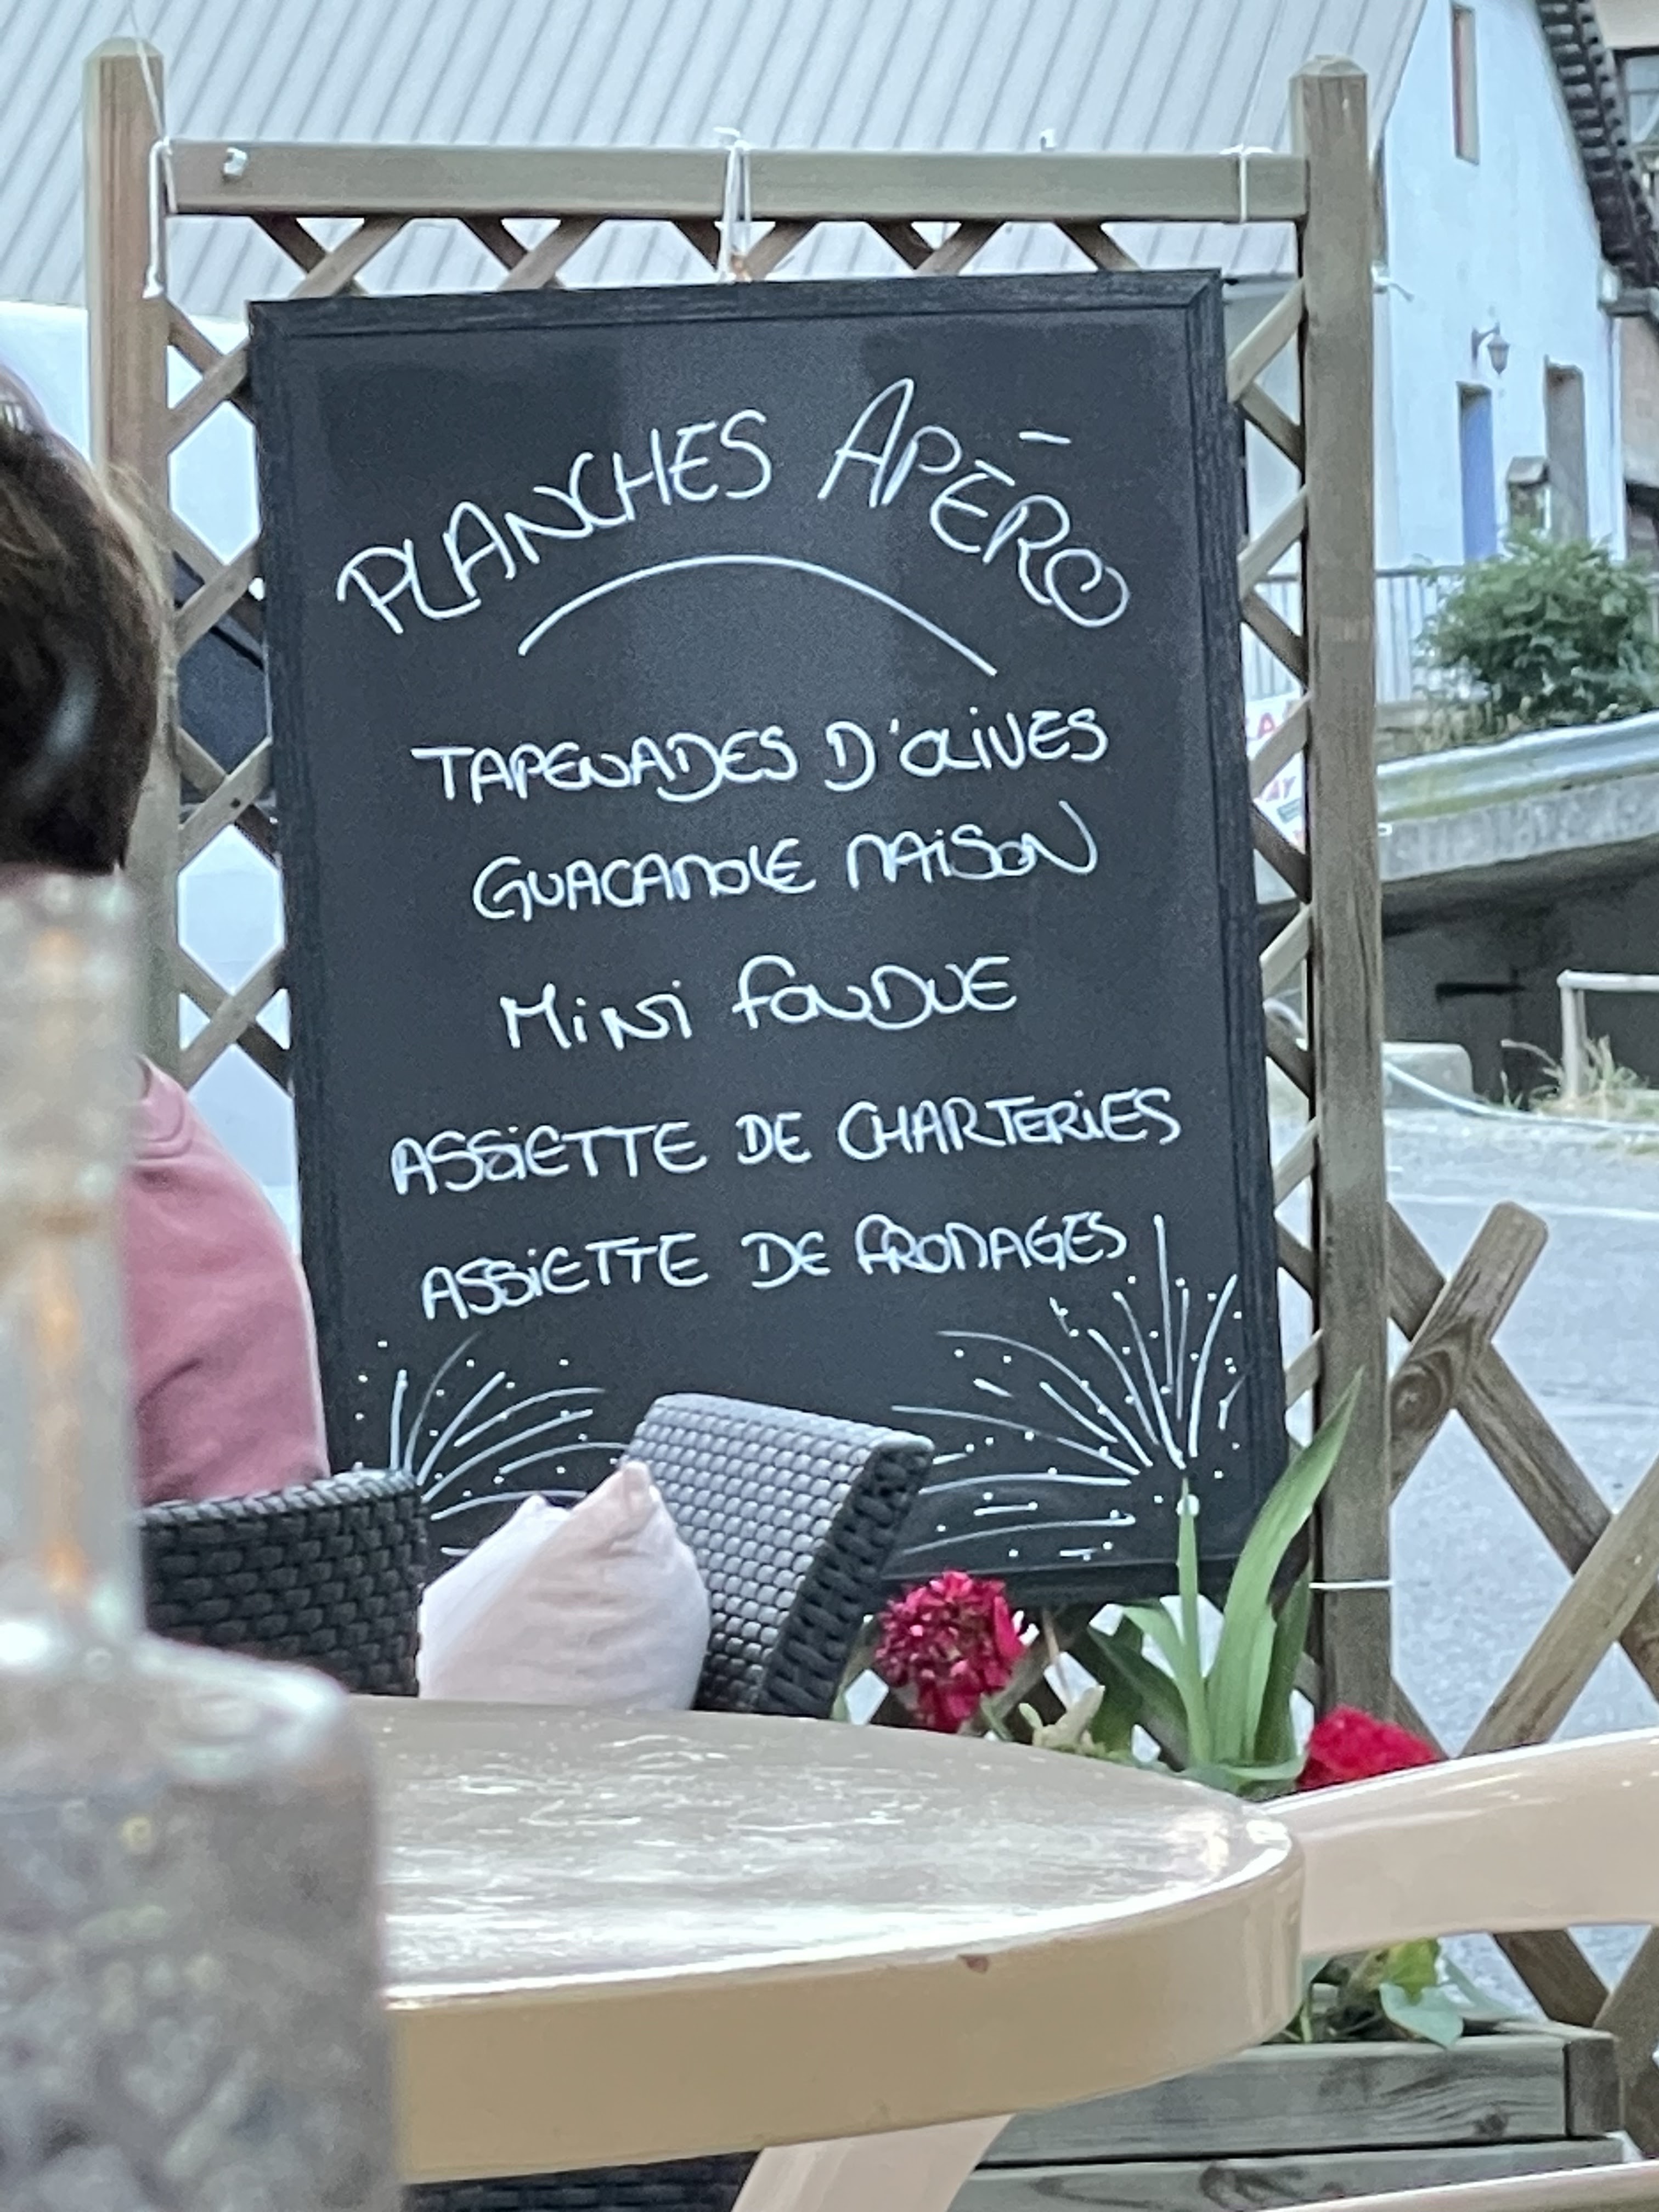 PLANCHES APÉRO
TAPENADES D'OLIVES
GUACAMOLE MAISON
MINI FONDUE
ASSIETTE DE CHARTERIES
ASSIETTE DE FROMAGES